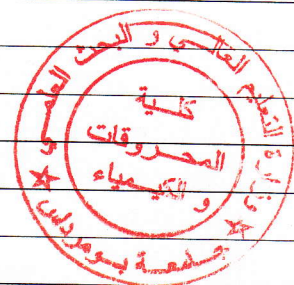 وزارة التعليم العالي و البحث العلمي
كلية
المحروقات
و الكيمياء
جامعة بومرداس